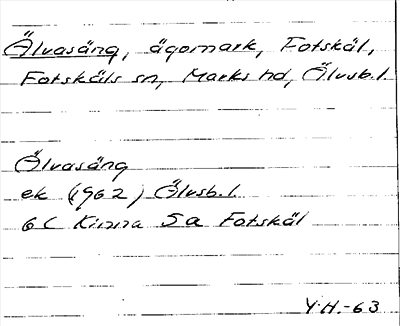 Älvasäng, ägomark, Fotskäl,
Fotskäls sn, Marks hd, Älvsb.l.
Älvasäng
ek (1962) Älvsb.l.
6C Kinna 5a Fotskäl
Y.H.-63